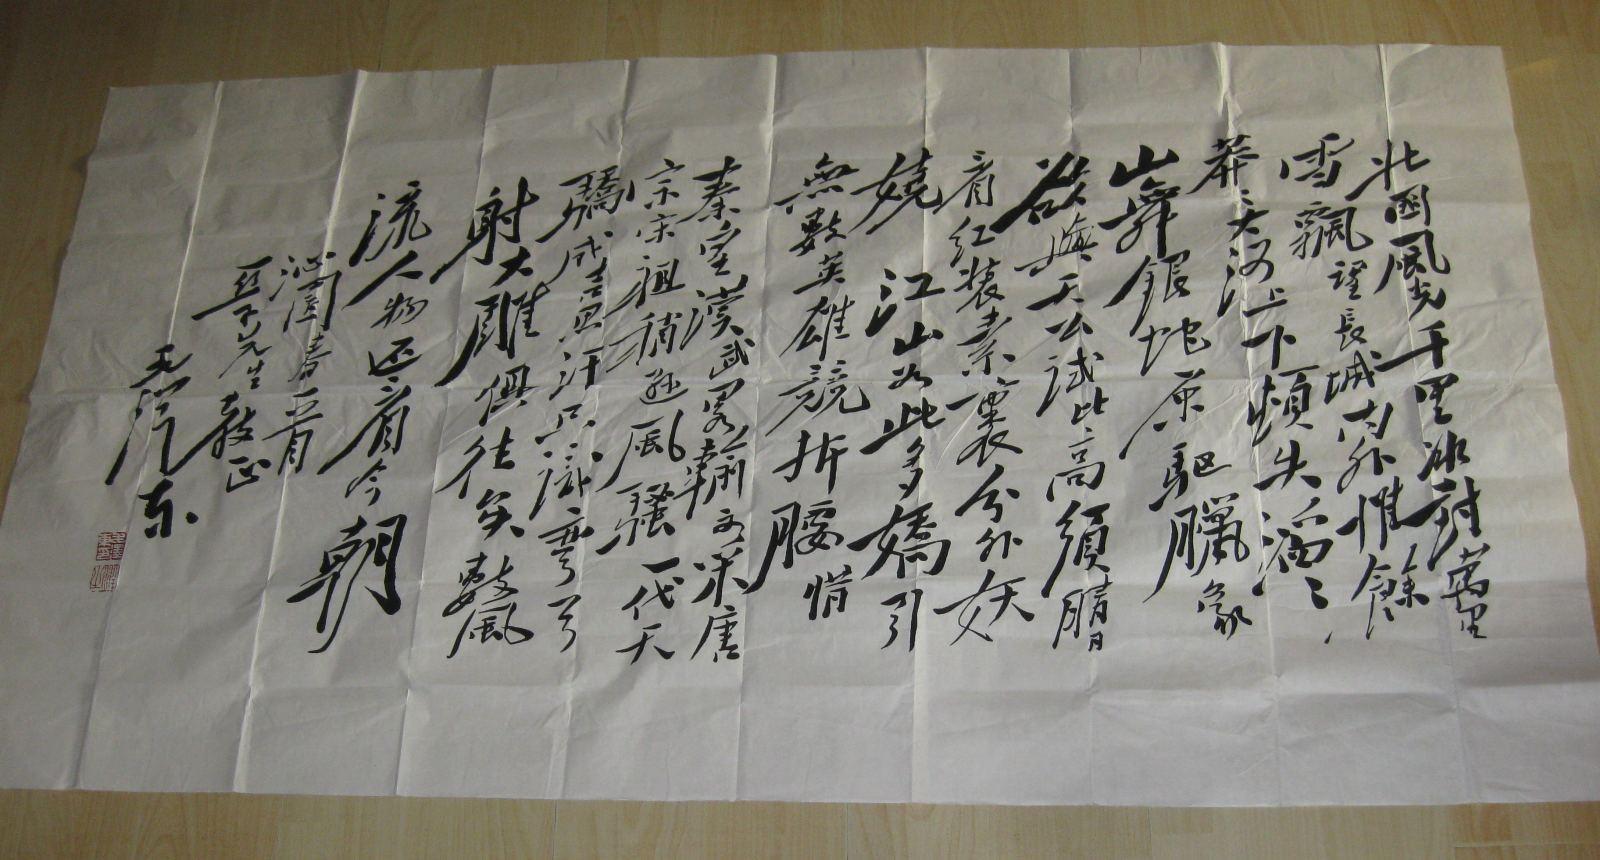 北國風光千里冰封萬里
雪飄望長城內外惟餘
莽〻大河上下頓失滔〻
山舞銀蛇原驅臘象
欲與天公試比高須晴日
看红装素裹分外妖
嬈江山如此多嬌引
無數英雄競折腰惜
秦皇漢武畧輸文采唐
宗宋祖稍遜風騷一代天
驕成吉思汗只識彎弓
射大雕俱往矣數風
流人物还看今朝
沁園春一首
亞子先生教正
毛澤东